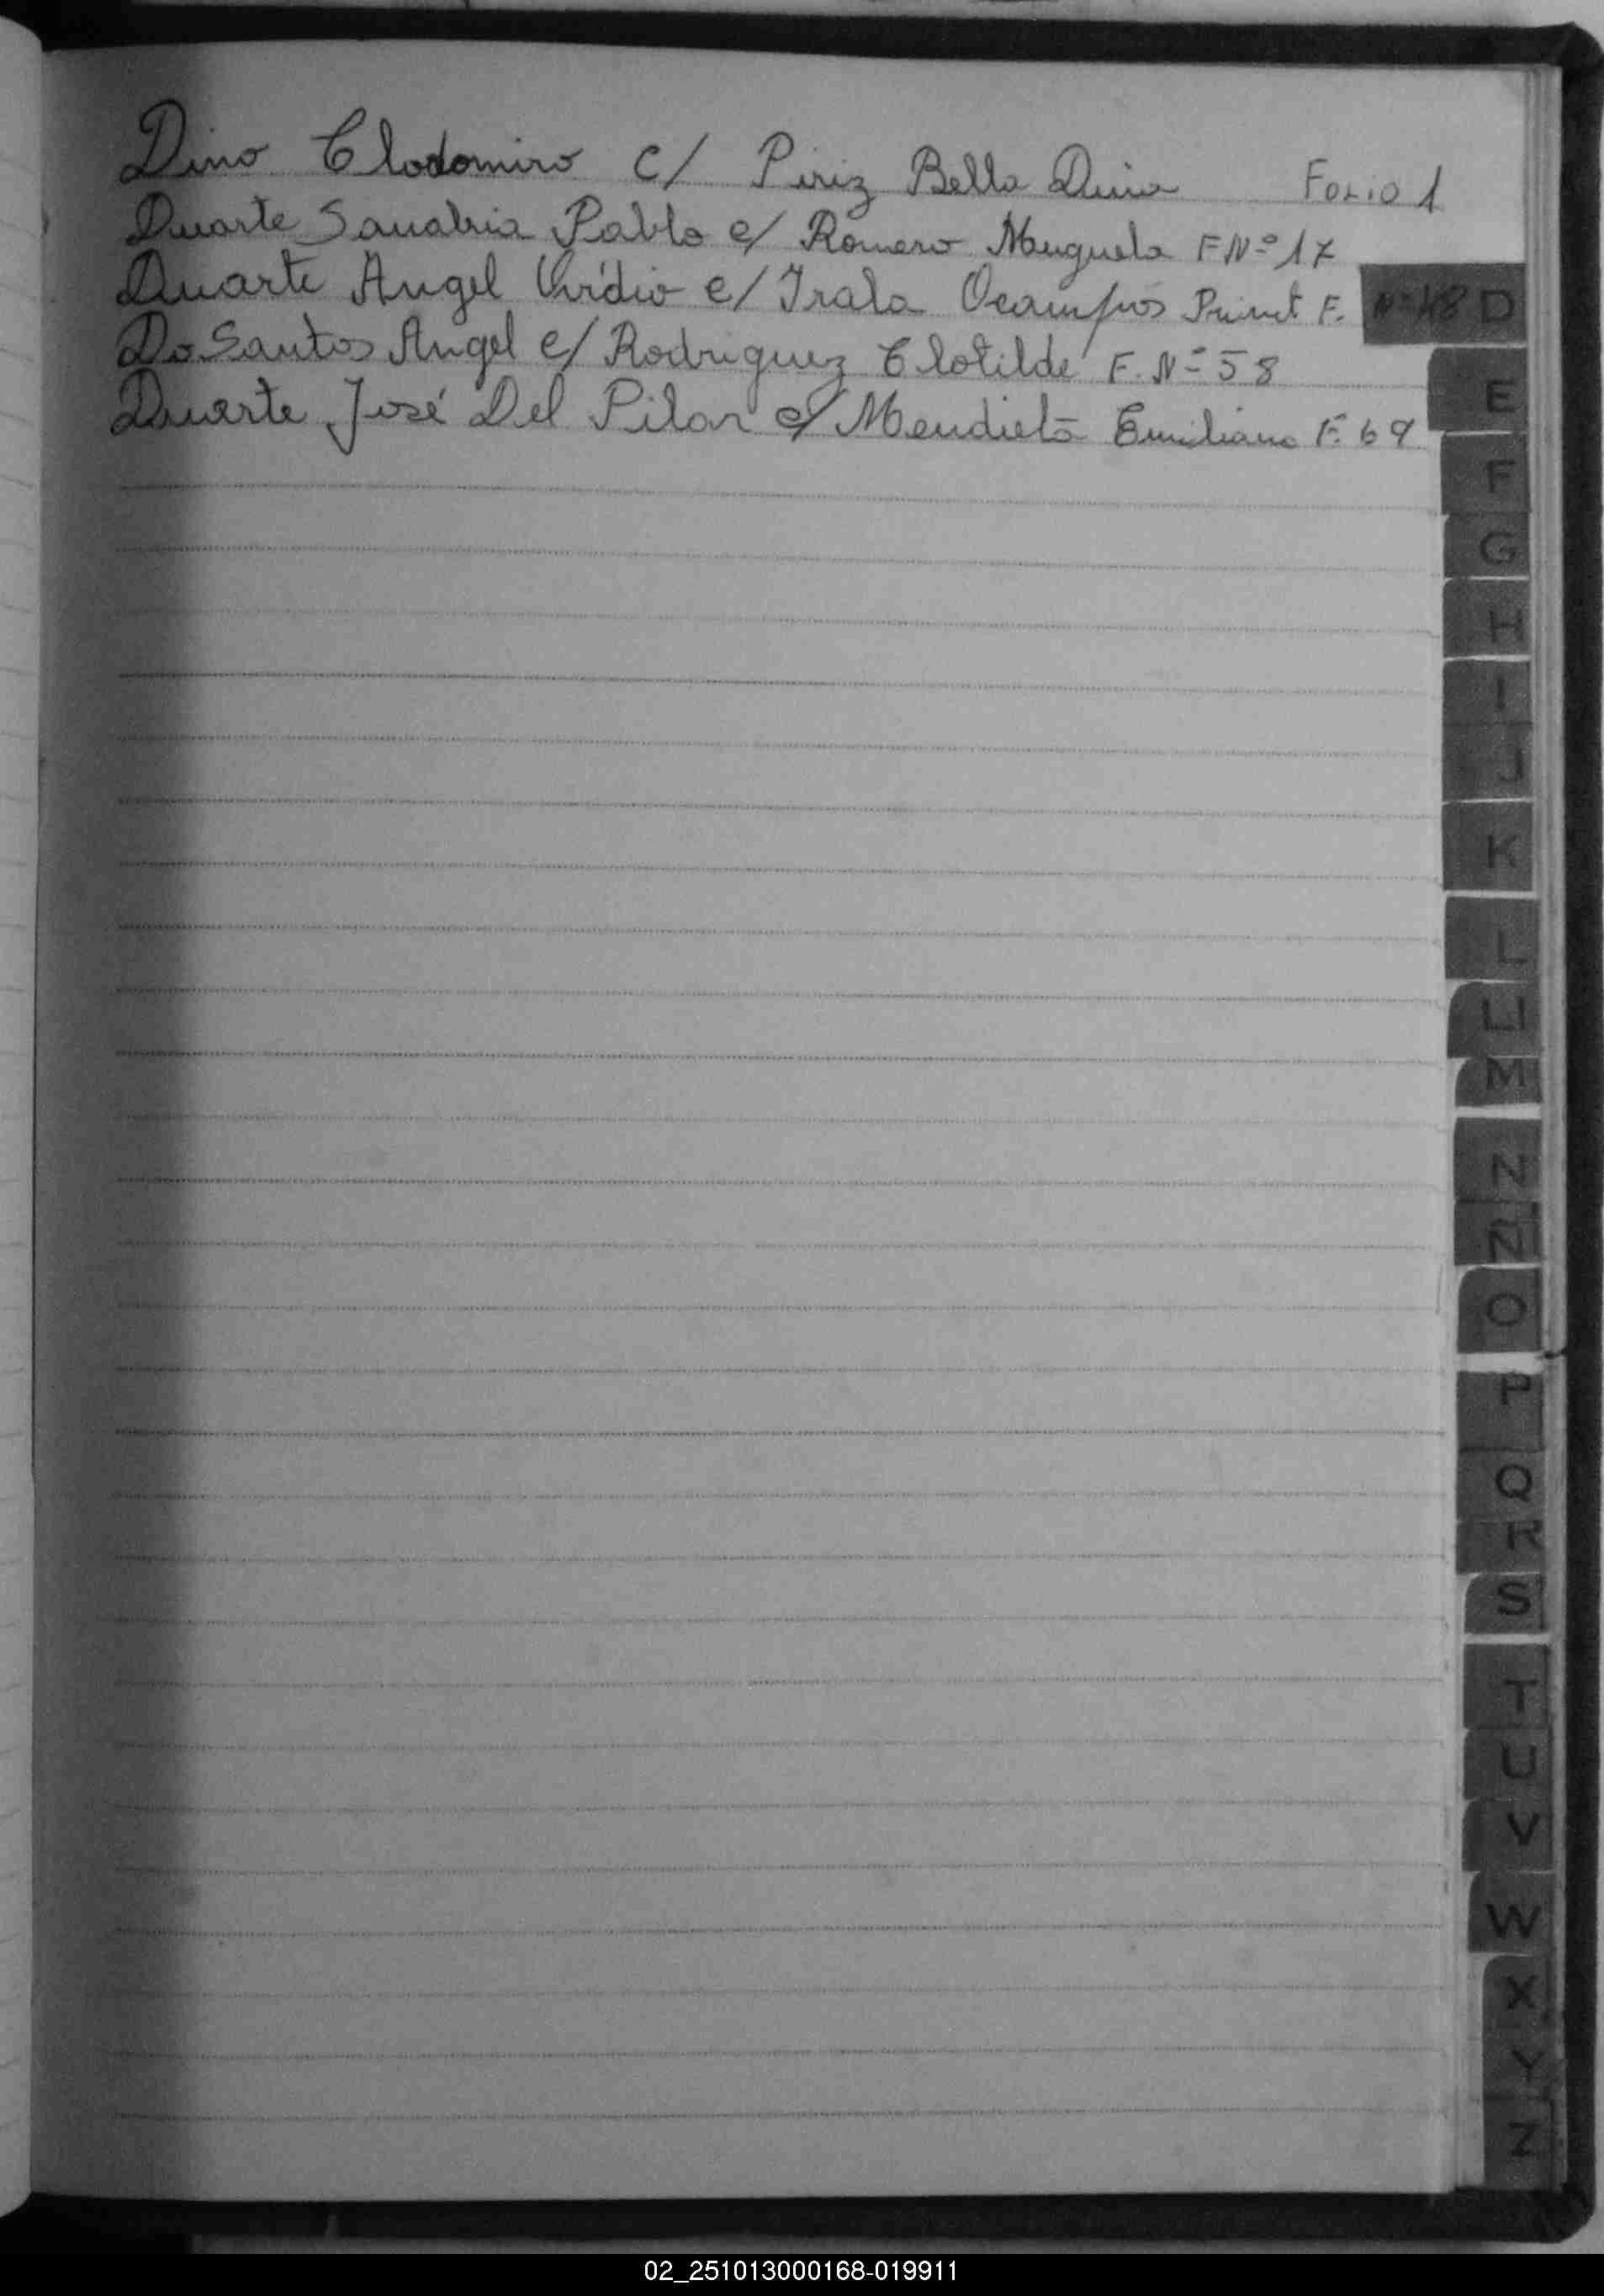 Dino Clodomiro c/ Piriz Bella Dina Folio 1
Duarte Sanabria Pablo c/ Romero Manguela F Nº 17
Duarte Angel Ovidio c/ Irala Ocampos F. Nº 48 D
Do Santos Angel c/ Rodriguez Clotilde F. Nº 58
Duarte José Del Pilar c/ Mendieta Emiliana F. 69
E
F
G
H
I
J
K
L
LL
M
N
Ñ
O
P
Q
R
S
T
U
V
W
X
Y
Z
02_251013000168-019911